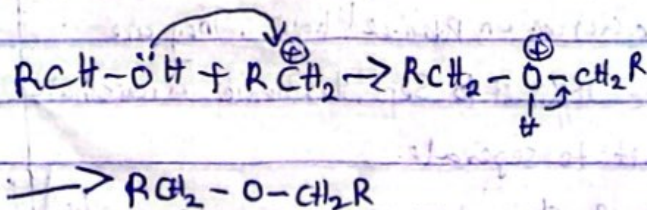 RCH-ÖH + RC⊕H₂ → RCH₂-O⊕(H)-CH₂R
→ RCH₂-O-CH₂R